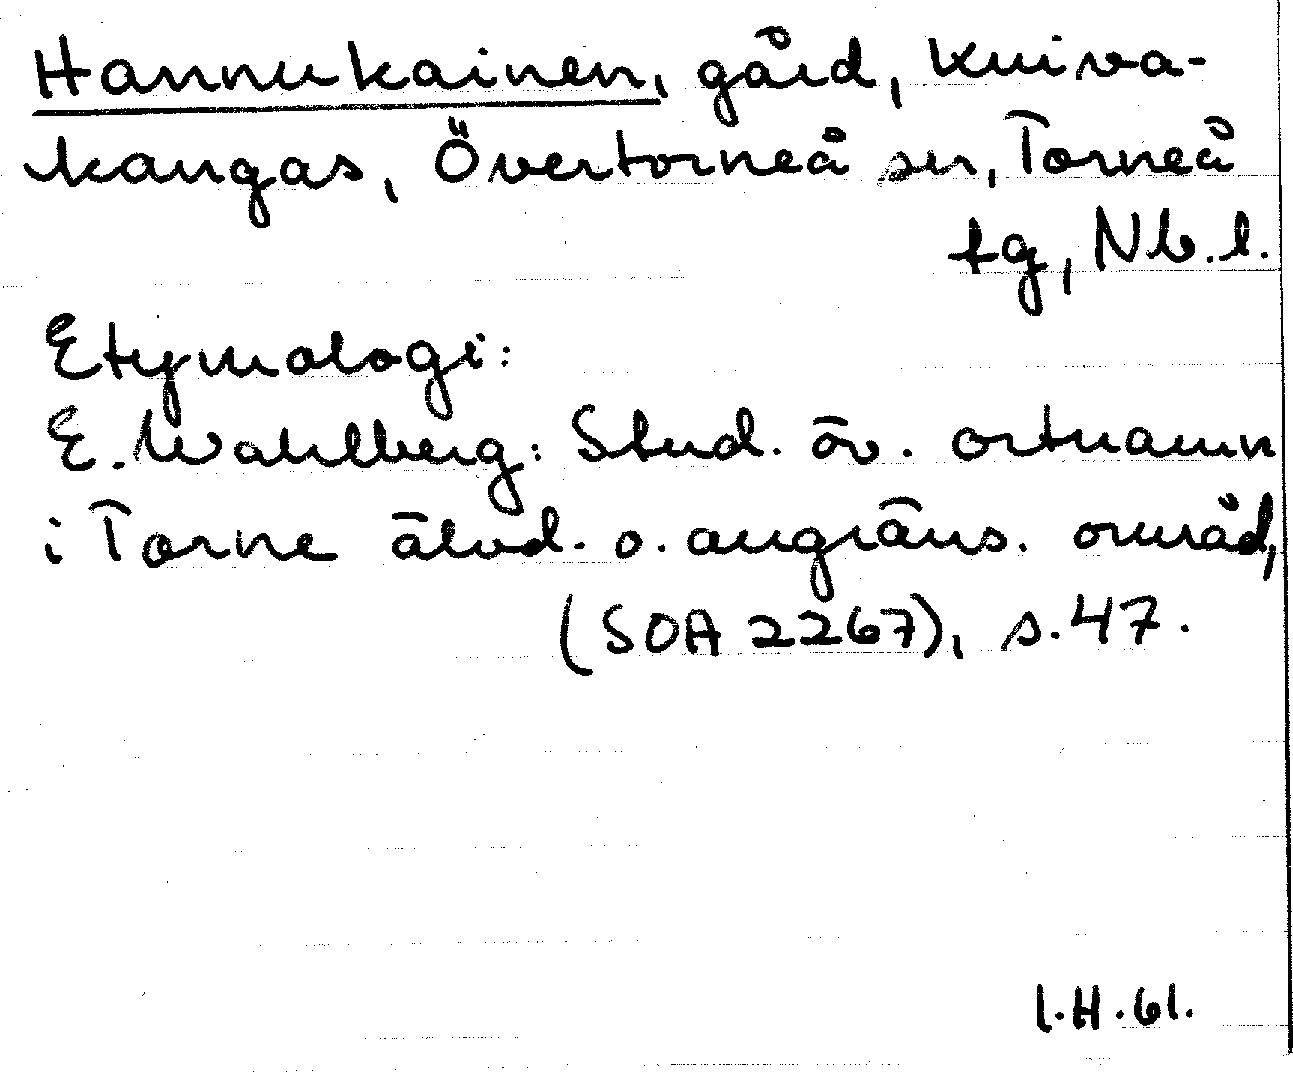 Hannukainen, gård, Kuiva-
kangas, Övertorneå sn, Torneå
tg, Nb.l.
Etymologi:
E. Wahlberg: Stud. öv. ortnamn
i Torne älvd. o. angräns. områd,
(SOA 2267), s.47.
I.H.61.